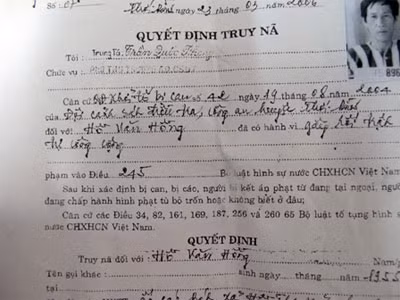 Số 07 ngày 23 tháng 03 năm 2006
QUYẾT ĐỊNH TRUY NÃ
Tôi : Trung Tá Trần Quốc
Chức vụ :
896
Căn cứ QĐ khởi tố bị can số 42 ngày 19 tháng 08 năm 2004
của Đội cảnh sát điều tra, công an huyện
đối với Hồ Văn Hồng đã có hành vi gây rối trật
tự công cộng
phạm vào Điều 245 Bộ luật hình sự nước CHXHCN Việt Nam
Sau khi xác định bị can, bị các, người bị kết án phạt tù đang tại ngoại, người
đang chấp hành hình phạt tù bỏ trốn hoặc không biết ở đâu;
Căn cứ các Điều 34, 82, 161, 169, 187, 256 và 260 65 Bộ luật tố tụng hình sự
nước CHXHCN Việt Nam.
QUYẾT ĐỊNH
Truy nã đối với : Hồ Văn Hồng Nam/
Tên gọi khác : sinh ngày tháng năm 1955
tại